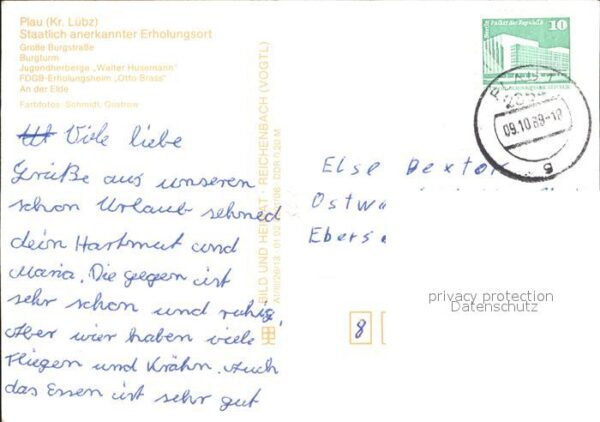 Plau (Kr. Lübz)
Staatlich anerkannter Erholungsort
Große Burgstraße
Burgturm
Jugendherberge „Walter Husemann"
FDGB-Erholungsheim „Otto Brass"
An der Elde
Farbfotos: Schmidt, Güstrow
Viele liebe
Grüße aus unseren
schon Urlaub sehned
dein Hartmut und
Maria. Die gegen ist
sehr schon und ruhig,
Aber wier haben viele
Fliegen und Krähn. Auch
das Essen ist sehr gut
BILD UND HEIMAT · REICHENBACH (VOGTL)
DDR 0,20 M
Palast der Republik
10
09.10.89-18
Else Dextor
Ostwa
Ebers
privacy protection
Datenschutz
8